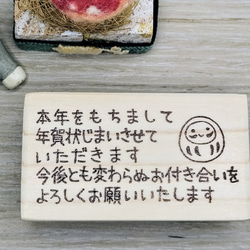 本年をもちまして
年賀状じまいさせて
いただきます
今後とも変わらぬお付き合いを
よろしくお願いいたします